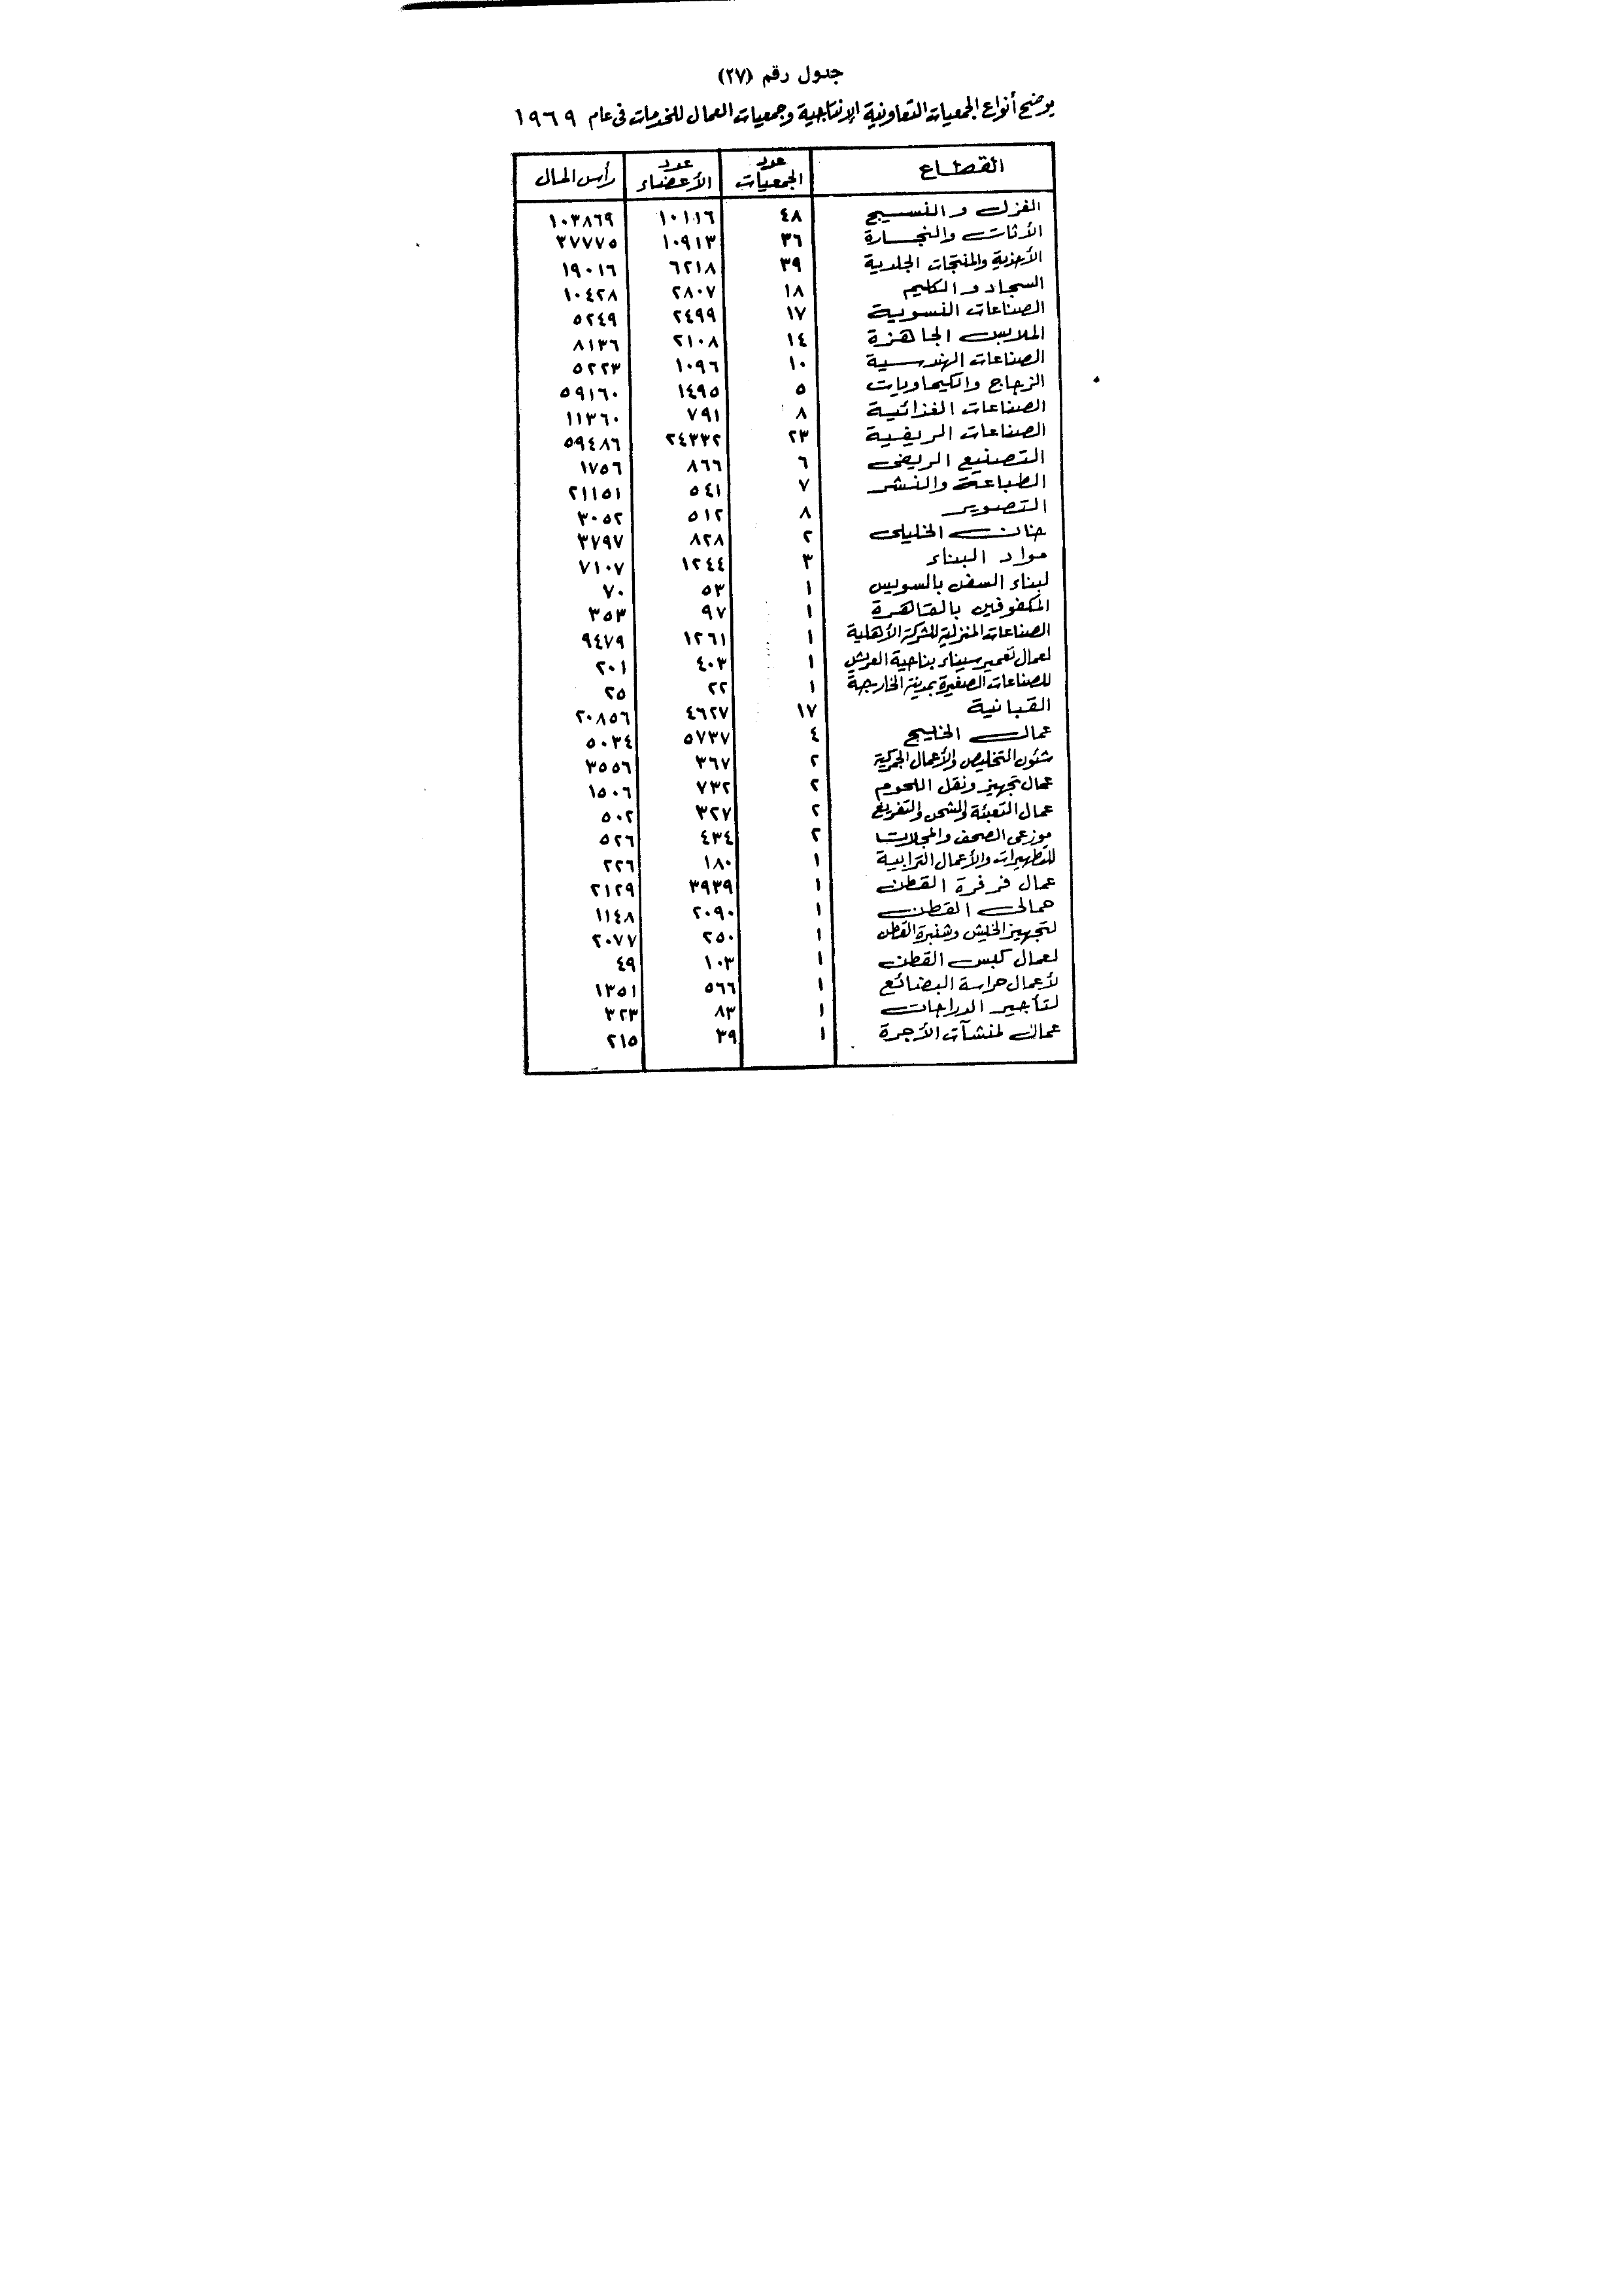 جدول رقم (٢٧)
يوضح أنواع الجمعيات التعاونية الإنتاجية وجمعيات العمال للخدمات فى عام ١٩٦٩
القطاع عدد الجمعيات عدد الأعضاء رأس المال
الغزل والنسيج ٤٨ ١٠١١٦ ١٠٣٨٦٩
الأثاث والنجارة ٣٦ ١٠٩١٣ ٣٧٧٧٥
الأحذية والمنتجات الجلدية ٣٩ ٦٢١٨ ١٩٠١٦
السجاد والكليم ١٨ ٢٨٠٧ ١٠٤٢٨
الصناعات النسوية ١٧ ٢٤٩٩ ٥٢٤٩
الملابس الجاهزة ١٤ ٢١٠٨ ٨١٣٦
الصناعات الهندسية ١٠ ١٠٩٦ ٥٢٢٣
الزجاج والكيماويات ٥ ١٤٩٥ ٥٩١٦٠
الصناعات الغذائية ٨ ٧٩١ ١١٣٦٠
الصناعات الريفية ٢٣ ٢٤٣٣٢ ٥٩٤٨٦
التصنيع الريفى ٦ ٨٦٦ ١٧٥٦
الطباعة والنشر ٧ ٥٤١ ٢١١٥١
التصوير ٨ ٥١٢ ٣٠٥٢
خان الخليلى ٢ ٨٢٨ ٣٧٩٧
مواد البناء ٣ ١٢٤٤ ٧١٠٧
لبناء السفن بالسويس ١ ٥٣ ٧٠
المكفوفين بالقاهرة ١ ٩٧ ٣٥٣
الصناعات المنزلية للشركة الأهلية ١ ١٢٦١ ٩٤٧٩
لعمال تعمير سيناء بناحية العريش ١ ٤٠٣ ٢٠١
للصناعات الصغيرة بمدينة الخارجة ١ ٢٢ ٢٥
القبانية ١٧ ٤٦٢٧ ٢٠٨٥٦
عمال الخليج ٤ ٥٧٣٧ ٥٠٣٤
شئون التخليص والأعمال الجمركية ٢ ٣٦٧ ٣٥٥٦
عمال تجهيز ونقل اللحوم ٢ ٧٣٢ ١٥٠٦
عمال التعبئة والشحن والتفريغ ٢ ٣٢٧ ٥٠٢
موزعى الصحف والمجلات ٢ ٤٣٤ ٥٢٦
للتطهيرات والأعمال الترابية ١ ١٨٠ ٢٢٦
عمال فرفرة القطن ١ ٣٩٣٩ ٢١٢٩
حمالى القطن ١ ٢٠٩٠ ١١٤٨
لتجهيز الخيش وشنبرة القطن ١ ٢٥٠ ٢٠٧٧
لعمال كبس القطن ١ ١٠٣ ٤٩
لأعمال حراسة البضائع ١ ٥٦٦ ١٣٥١
لتأجير الدراجات ١ ٨٣ ٣٢٣
عمال لمنشآت الأجرة ١ ٣٩ ٢١٥